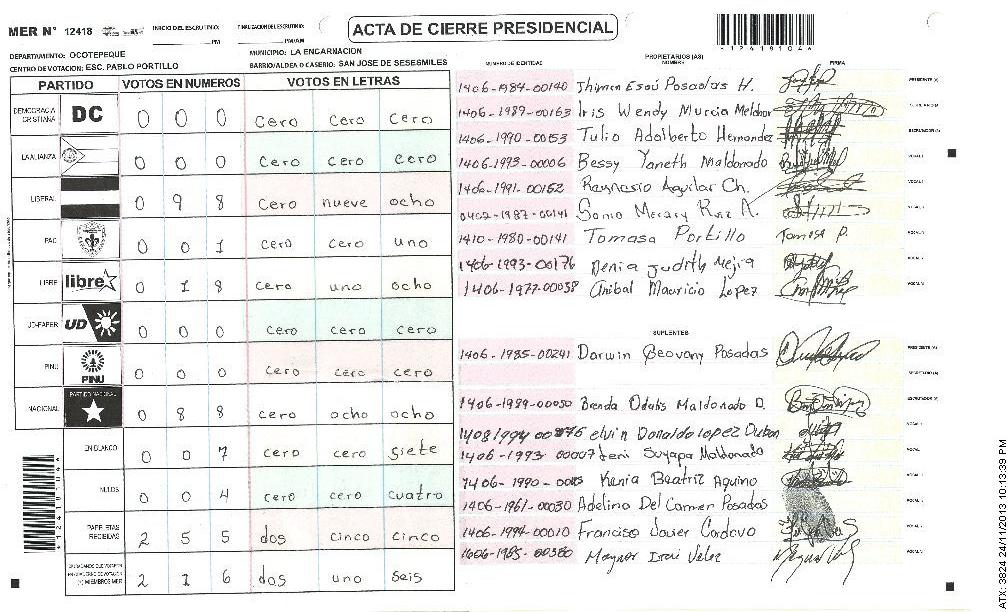 MER N° 12418
INICIO DEL ESCRUTINIO:
PM
FINALIZACION DEL ESCRUTINIO:
PM/AM
ACTA DE CIERRE PRESIDENCIAL
*124181044*
DEPARTAMENTO: OCOTEPEQUE
MUNICIPIO: LA ENCARNACION
CENTRO DE VOTACION: ESC. PABLO PORTILLO
BARRIO/ALDEA O CASERIO: SAN JOSE DE SESESMILES
PARTIDO VOTOS EN NUMEROS VOTOS EN LETRAS
DEMOCRACIA CRISTIANA DC 0 0 0 cero cero cero
LA ALIANZA 0 0 0 cero cero cero
LIBERAL 0 9 8 cero nueve ocho
PAC 0 0 1 cero cero uno
LIBRE libre 0 1 8 cero uno ocho
UD-FAPER UD 0 0 0 cero cero cero
PINU PINU 0 0 0 cero cero cero
NACIONAL PARTIDO NACIONAL 0 8 8 cero ocho ocho
EN BLANCO 0 0 7 cero cero siete
NULOS 0 0 4 cero cero cuatro
PAPELETAS RECIBIDAS 2 5 5 dos cinco cinco
2 1 6 dos uno seis
*124181044*
PROPIETARIOS (AS)
NUMERO DE IDENTIDAD NOMBRE FIRMA
1406-1984-00140 Jhimen Esaú Posadas H. PRESIDENTE (A)
1406-1989-00163 Iris Wendy Murcia Melchor SECRETARIO (A)
1406-1990-00153 Tulio Adalberto Hernandez ESCRUTADOR (A)
1406-1993-00006 Bessy Yaneth Maldonado
1406-1991-00162 Reynerio Aguilar Ch.
0402-1987-00141 Sonio Ruiz A.
1410-1980-00141 Tomasa Portillo Tomasa P.
1406-1993-00176 Denia Judith Mejia
1406-1977-00038 Anibal Mauricio Lopez
SUPLENTES
1406-1985-00241 Darwin Geovany Posadas PRESIDENTE (A)
SECRETARIO (A)
1406-1989-00050 Brenda Odalis Maldonado D. ESCRUTADOR (A)
elvin Donaldo Lopez Dubon
1406-1993-00007 Jeni Suyapa Maldonado
Kenia Beatriz Aquino
1406-1961-00030 Adelina Del Carmen Posadas
1406-1994-00010 Francisco Javier Cordova
Maynor Velez
ATX: 3824 24/11/2013 10:13:39 PM